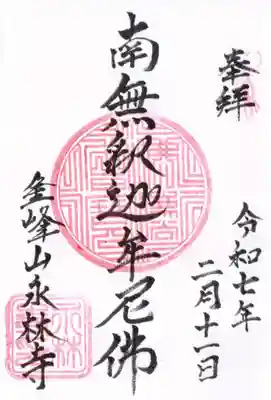 奉拜
南無釈迦牟尼佛
令和七年
二月十一日
金峰山永林寺